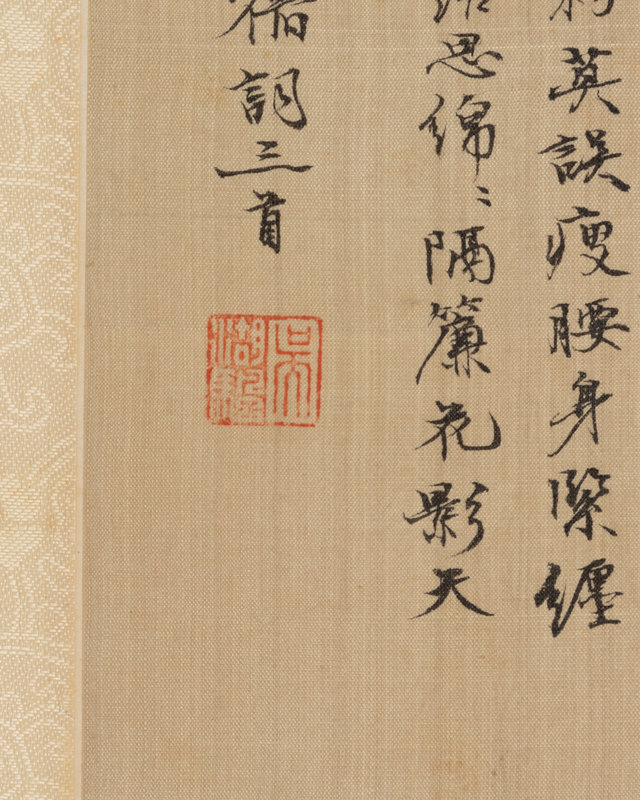 英誤瘦腰身緊纏
思綿〻隔簾花影天
詞三首
吳湖颿